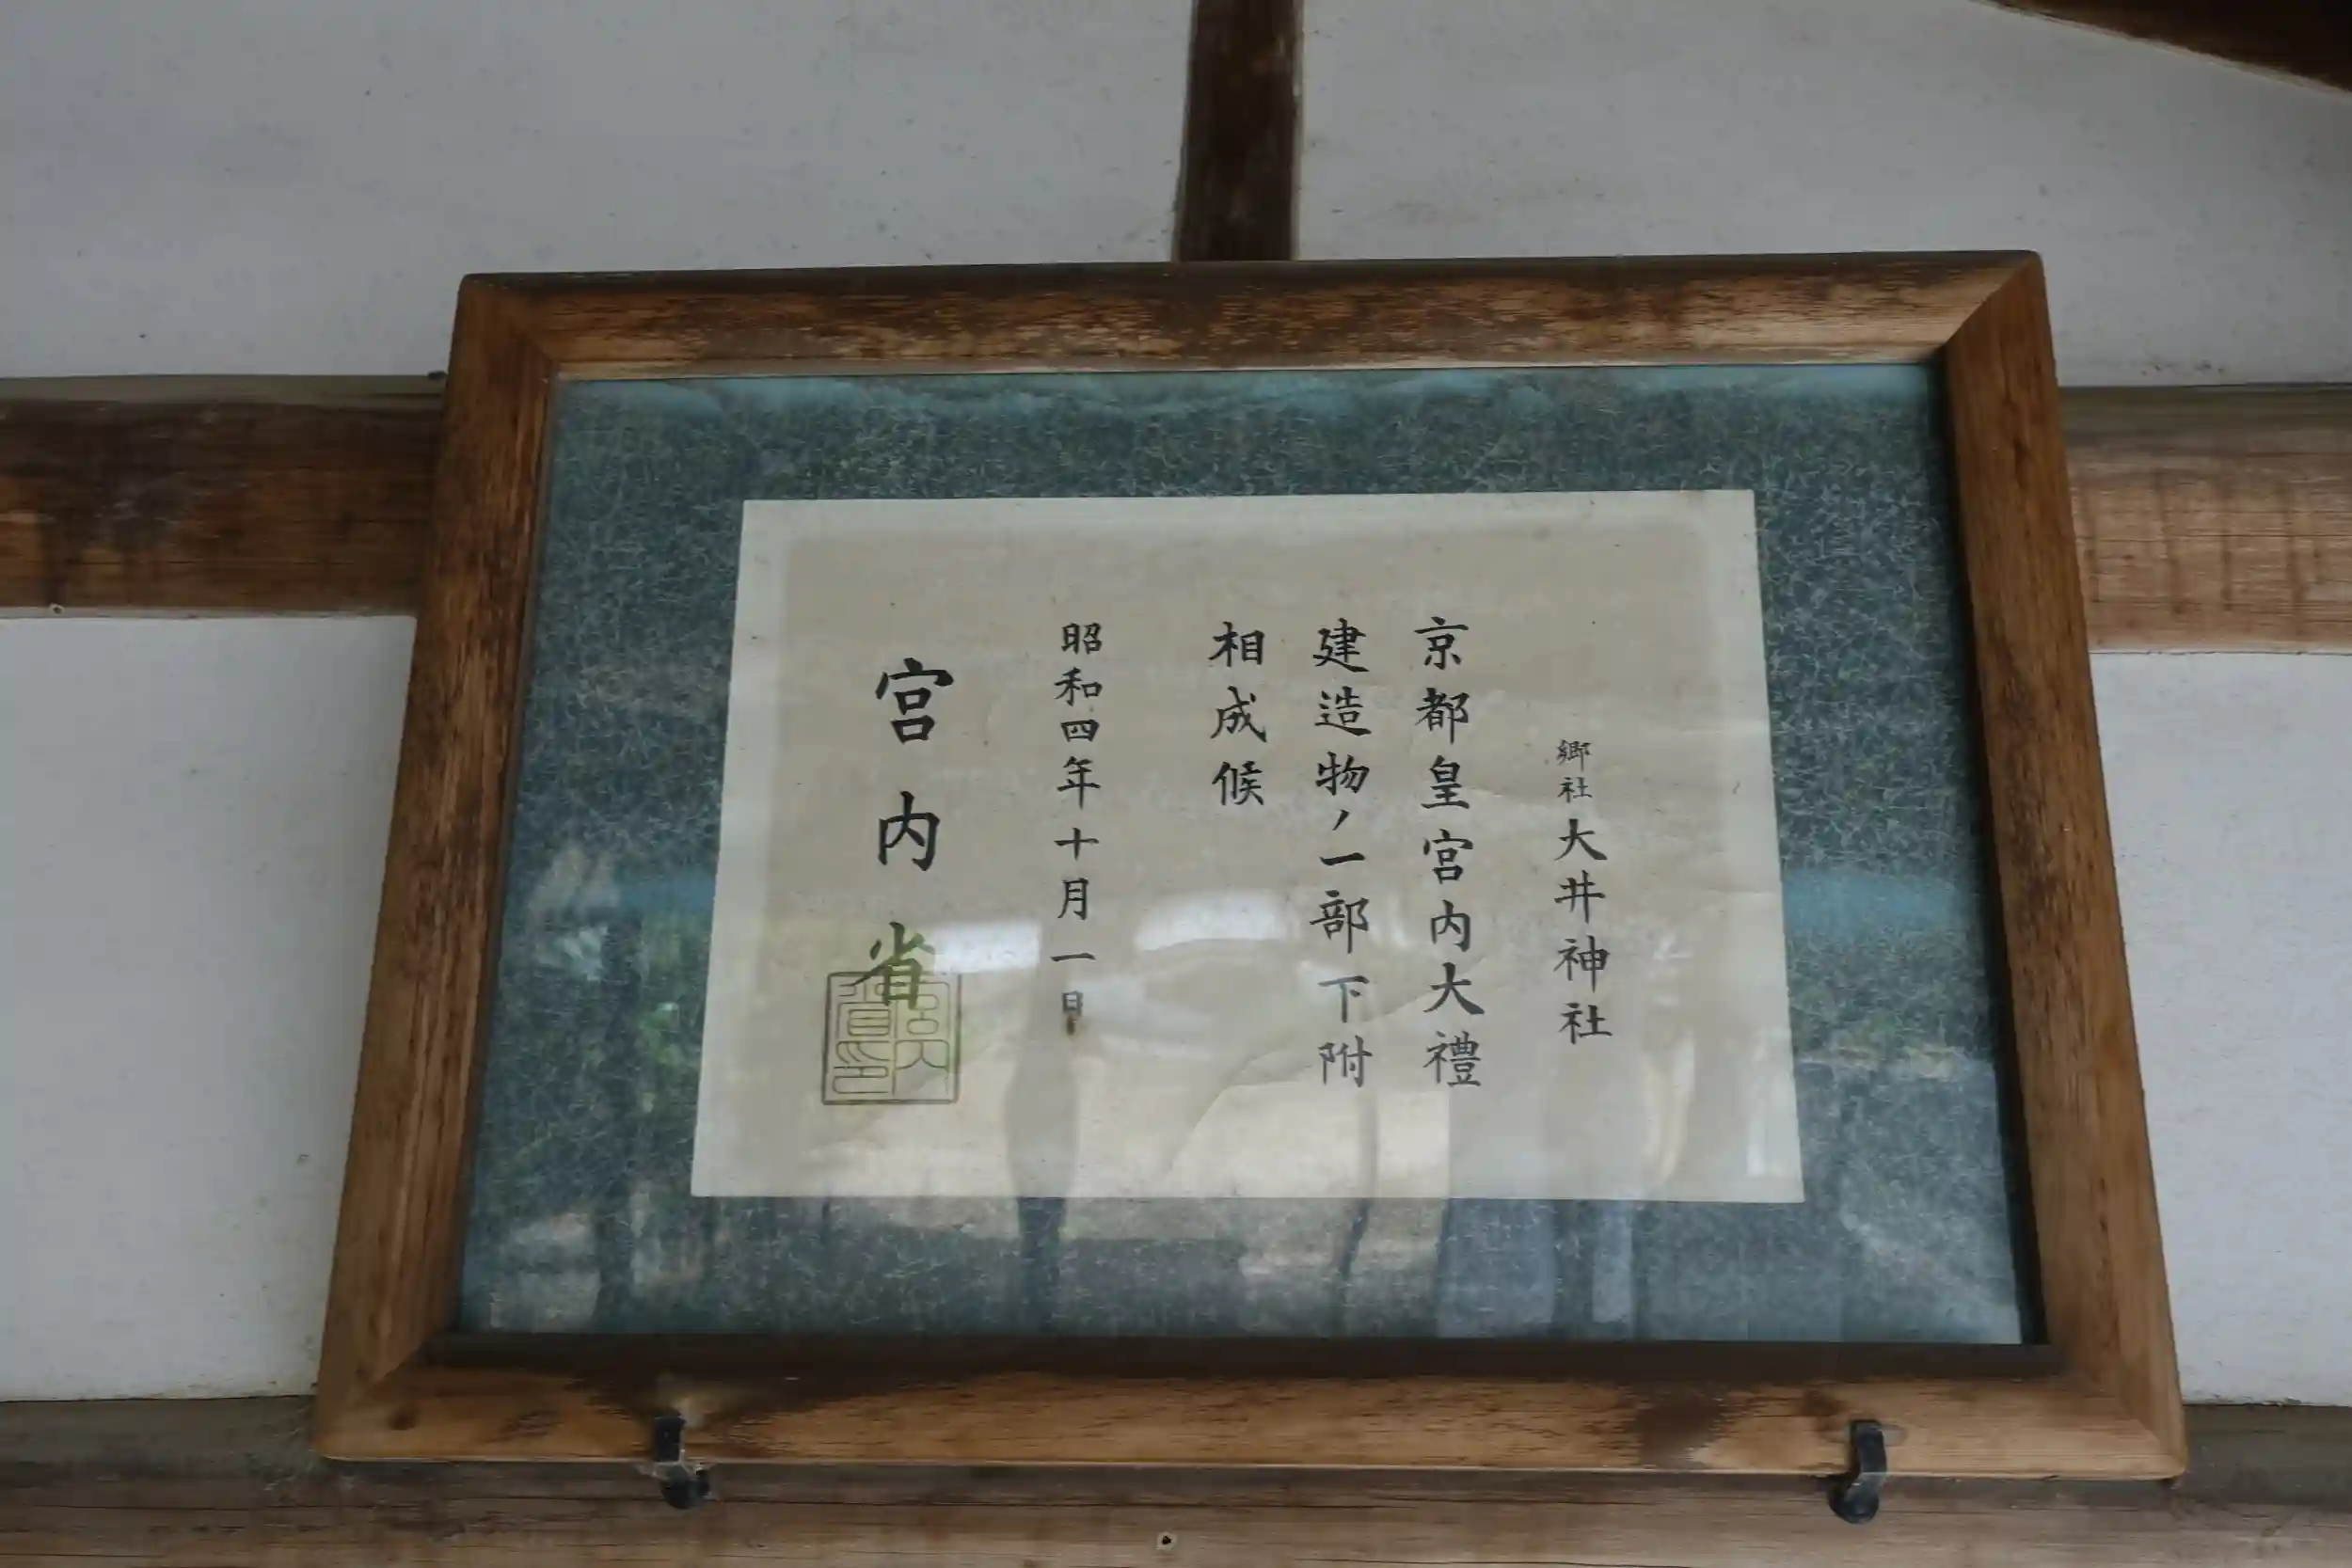 郷社大井神社
京都皇宮内大禮
建造物ノ一部下附
相成候
昭和四年十月一日
宮内省
宮内省印